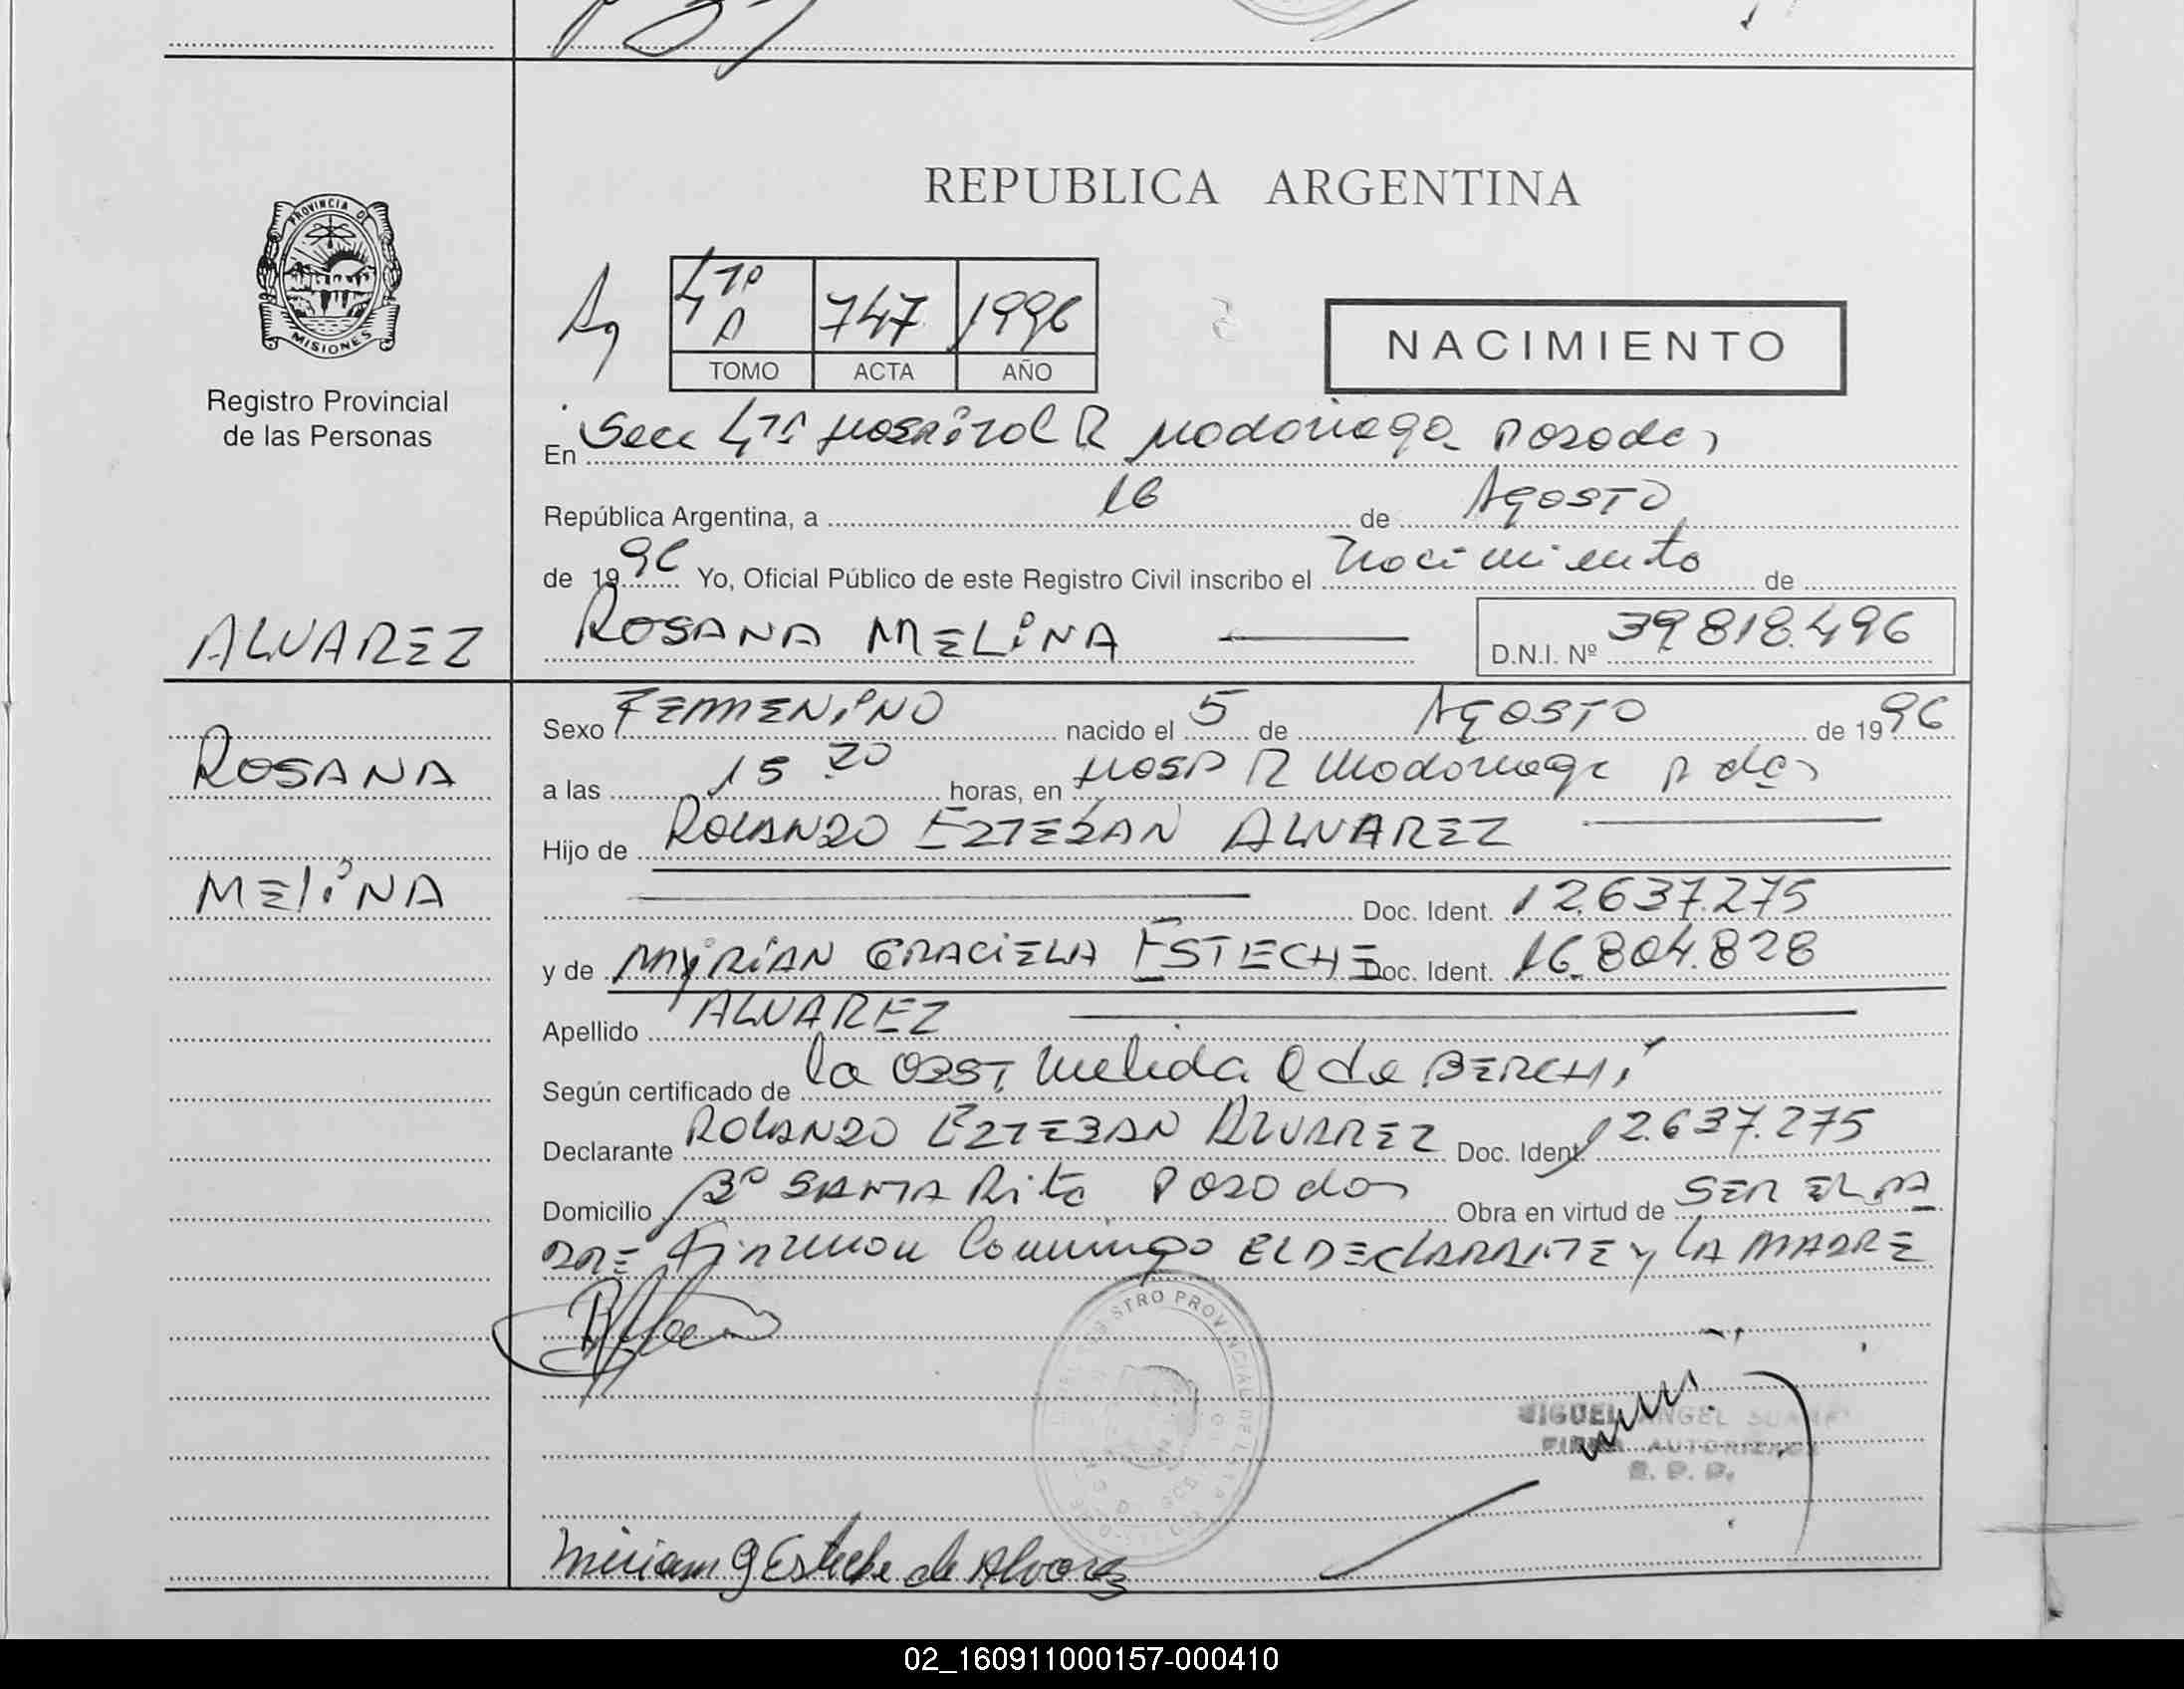 REPUBLICA ARGENTINA
PROVINCIA DE
MISIONES
Registro Provincial
de las Personas
747 1996
TOMO ACTA AÑO
NACIMIENTO
En Secc Hospital R Madariaga Posadas
República Argentina, a 16 de Agosto
de 1996 Yo, Oficial Público de este Registro Civil inscribo el Nacimiento de
ALVAREZ
ROSANA MELINA
D.N.I. Nº 39.818.496
ROSANA
MELINA
Sexo FEMMENINO nacido el 5 de AGOSTO de 1996
a las 15 20 horas, en Hosp R Madariaga Pdas
Hijo de ROLANDO EZTEBAN ALVAREZ
Doc. Ident. 12.637.275
y de MYRIAN GRACIELA ESTECHE Doc. Ident. 16.804.828
Apellido ALVAREZ
Según certificado de la OBST. de BERCHI
Declarante ROLANDO EZTEBAN ALVAREZ Doc. Ident. 12.637.275
Domicilio Bº SANTA Rita Posadas Obra en virtud de SER EL PA
DRE Firman Conmigo EL DECLARANTE y LA MADRE
REGISTRO PROVINCIAL DE LAS
MIGUEL ANGEL SUAREZ
FIRMA AUTORIZADA
R. P. P.
Miriam G Esteche de Alvarez
02_160911000157-000410